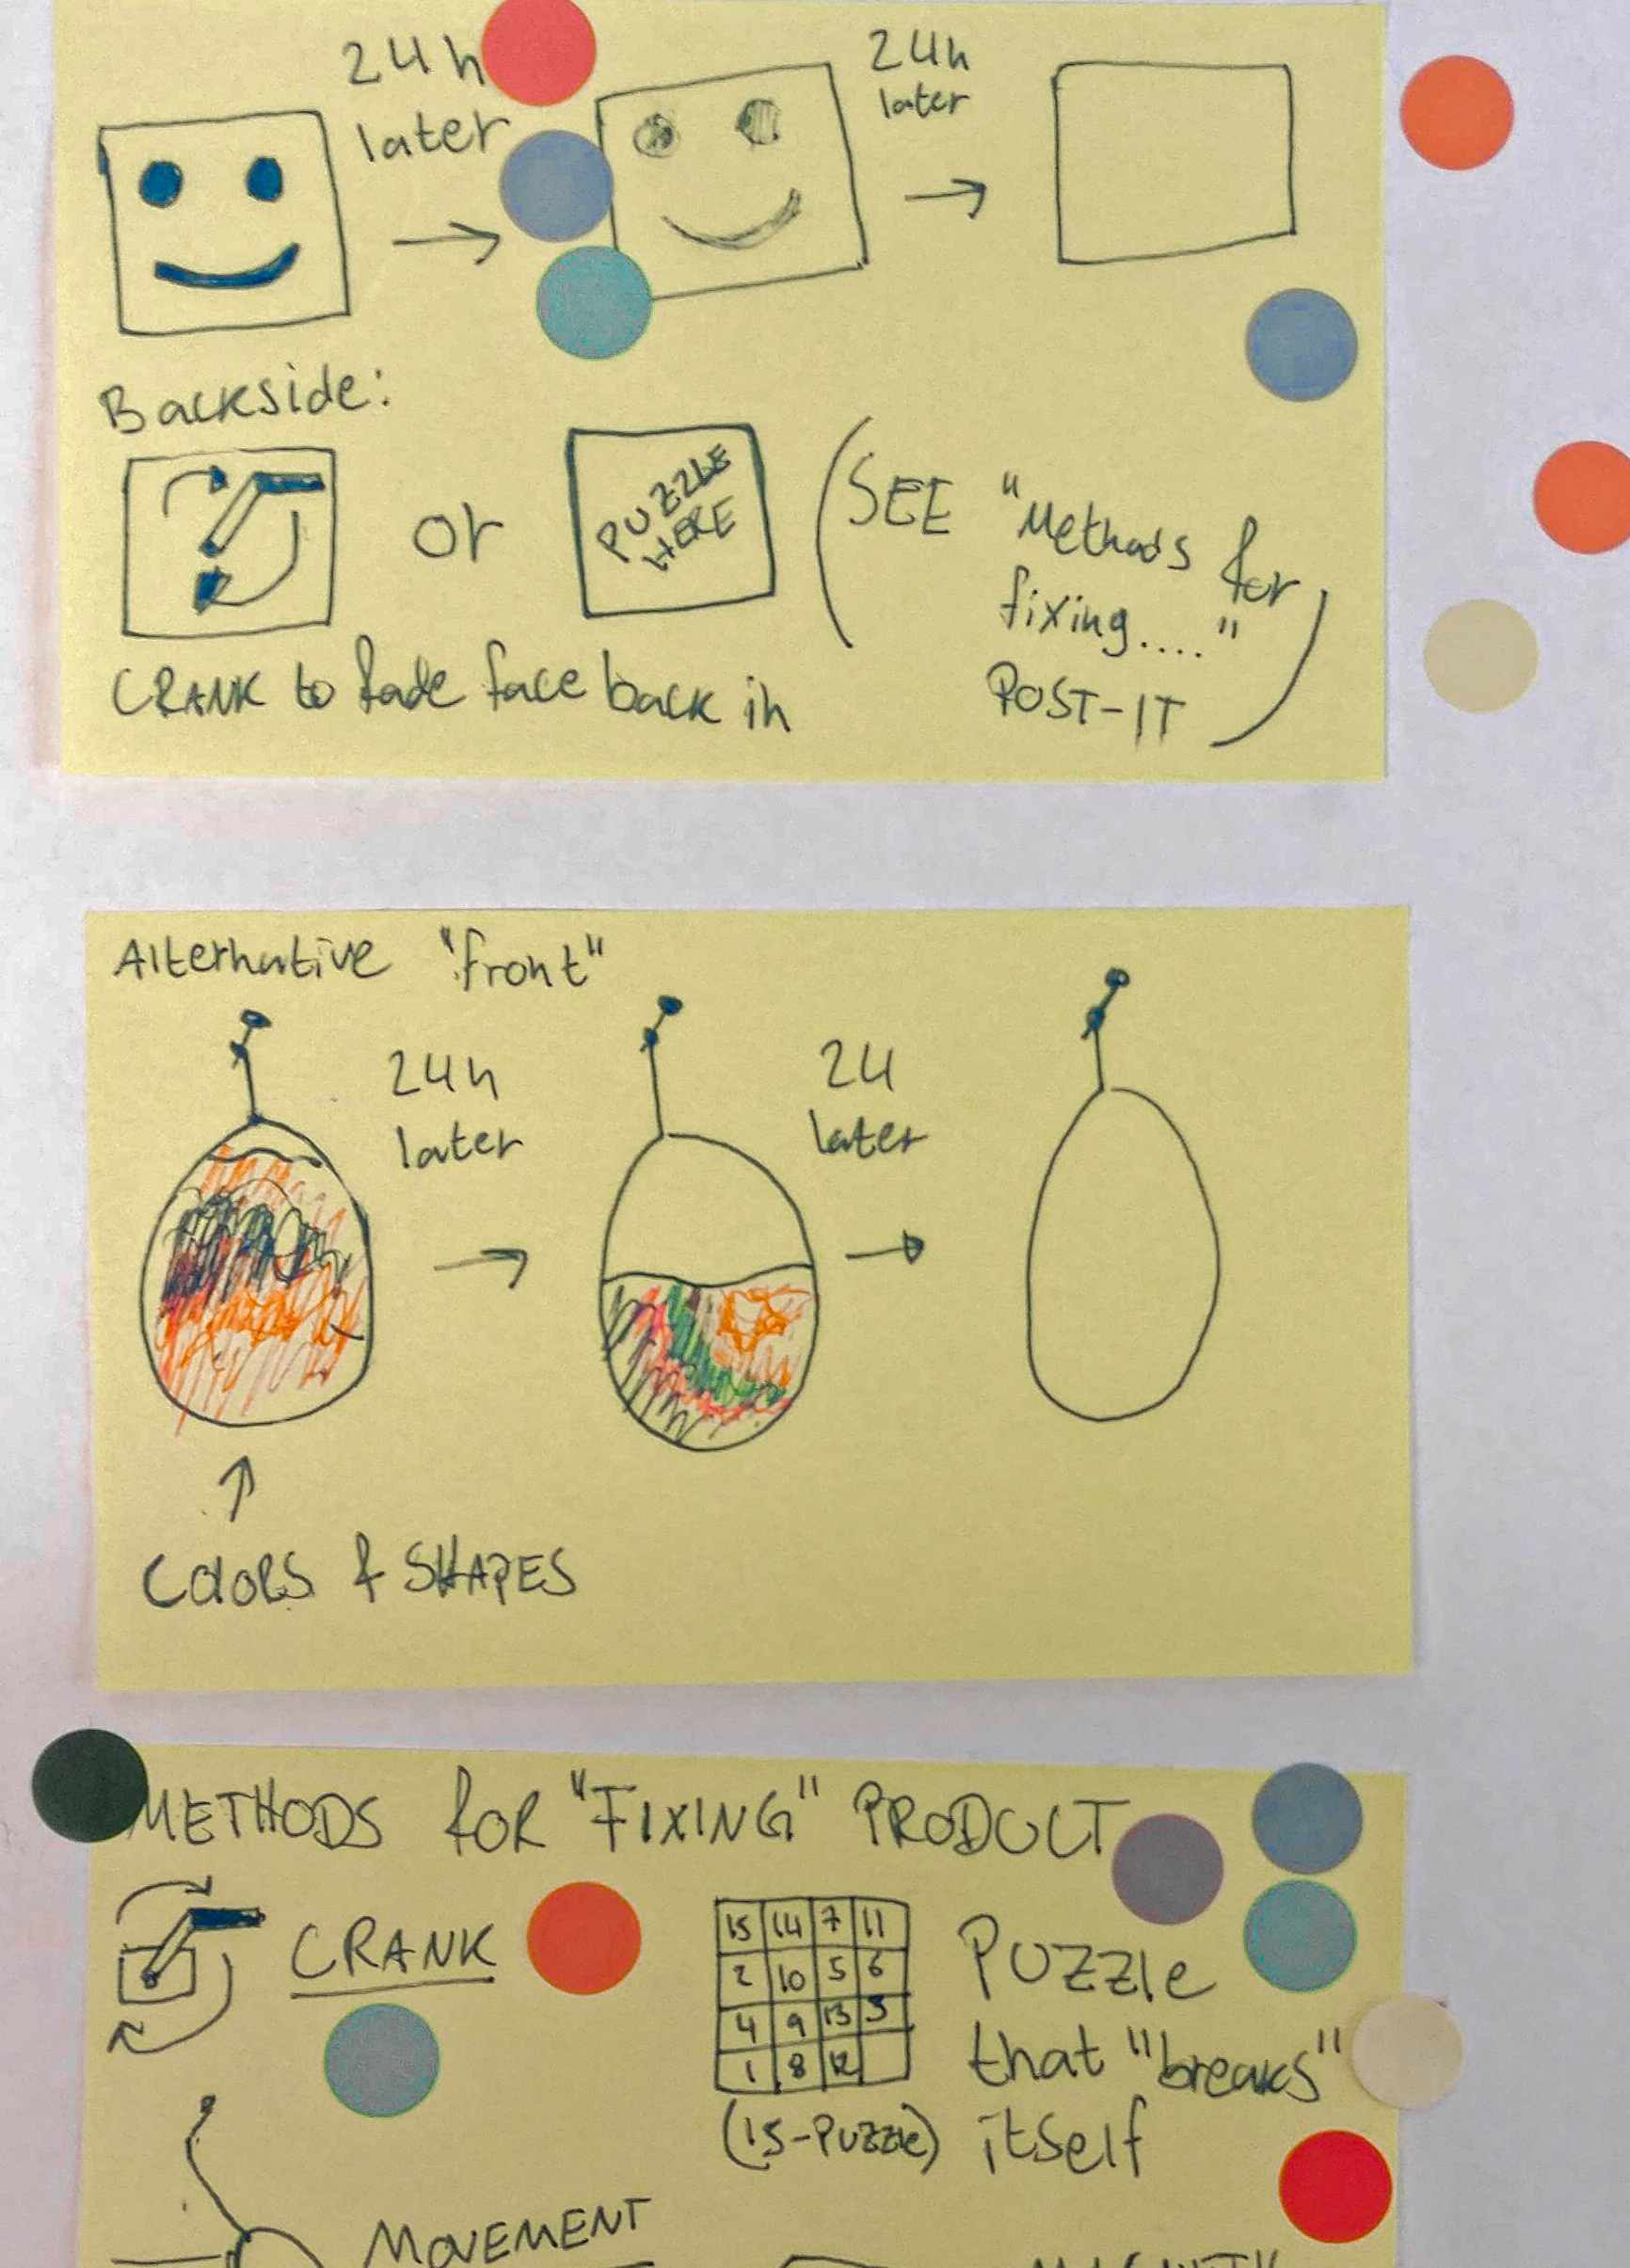 24h
later
24h
later
Backside:
or
PUZZLE
HERE
(SEE "Methods for
fixing...."
POST-IT)
CRANK to fade face back in
Alternative "front"
24h
later
24
later
COlORS & SHAPES
METHODS foR "FIXING" PRODUCT
CRANK
15 14 7 11
2 10 5 6
4 9 13 3
1 8 12
(15-Puzzle)
Puzzle
that "breaks"
itself
MOVEMENT